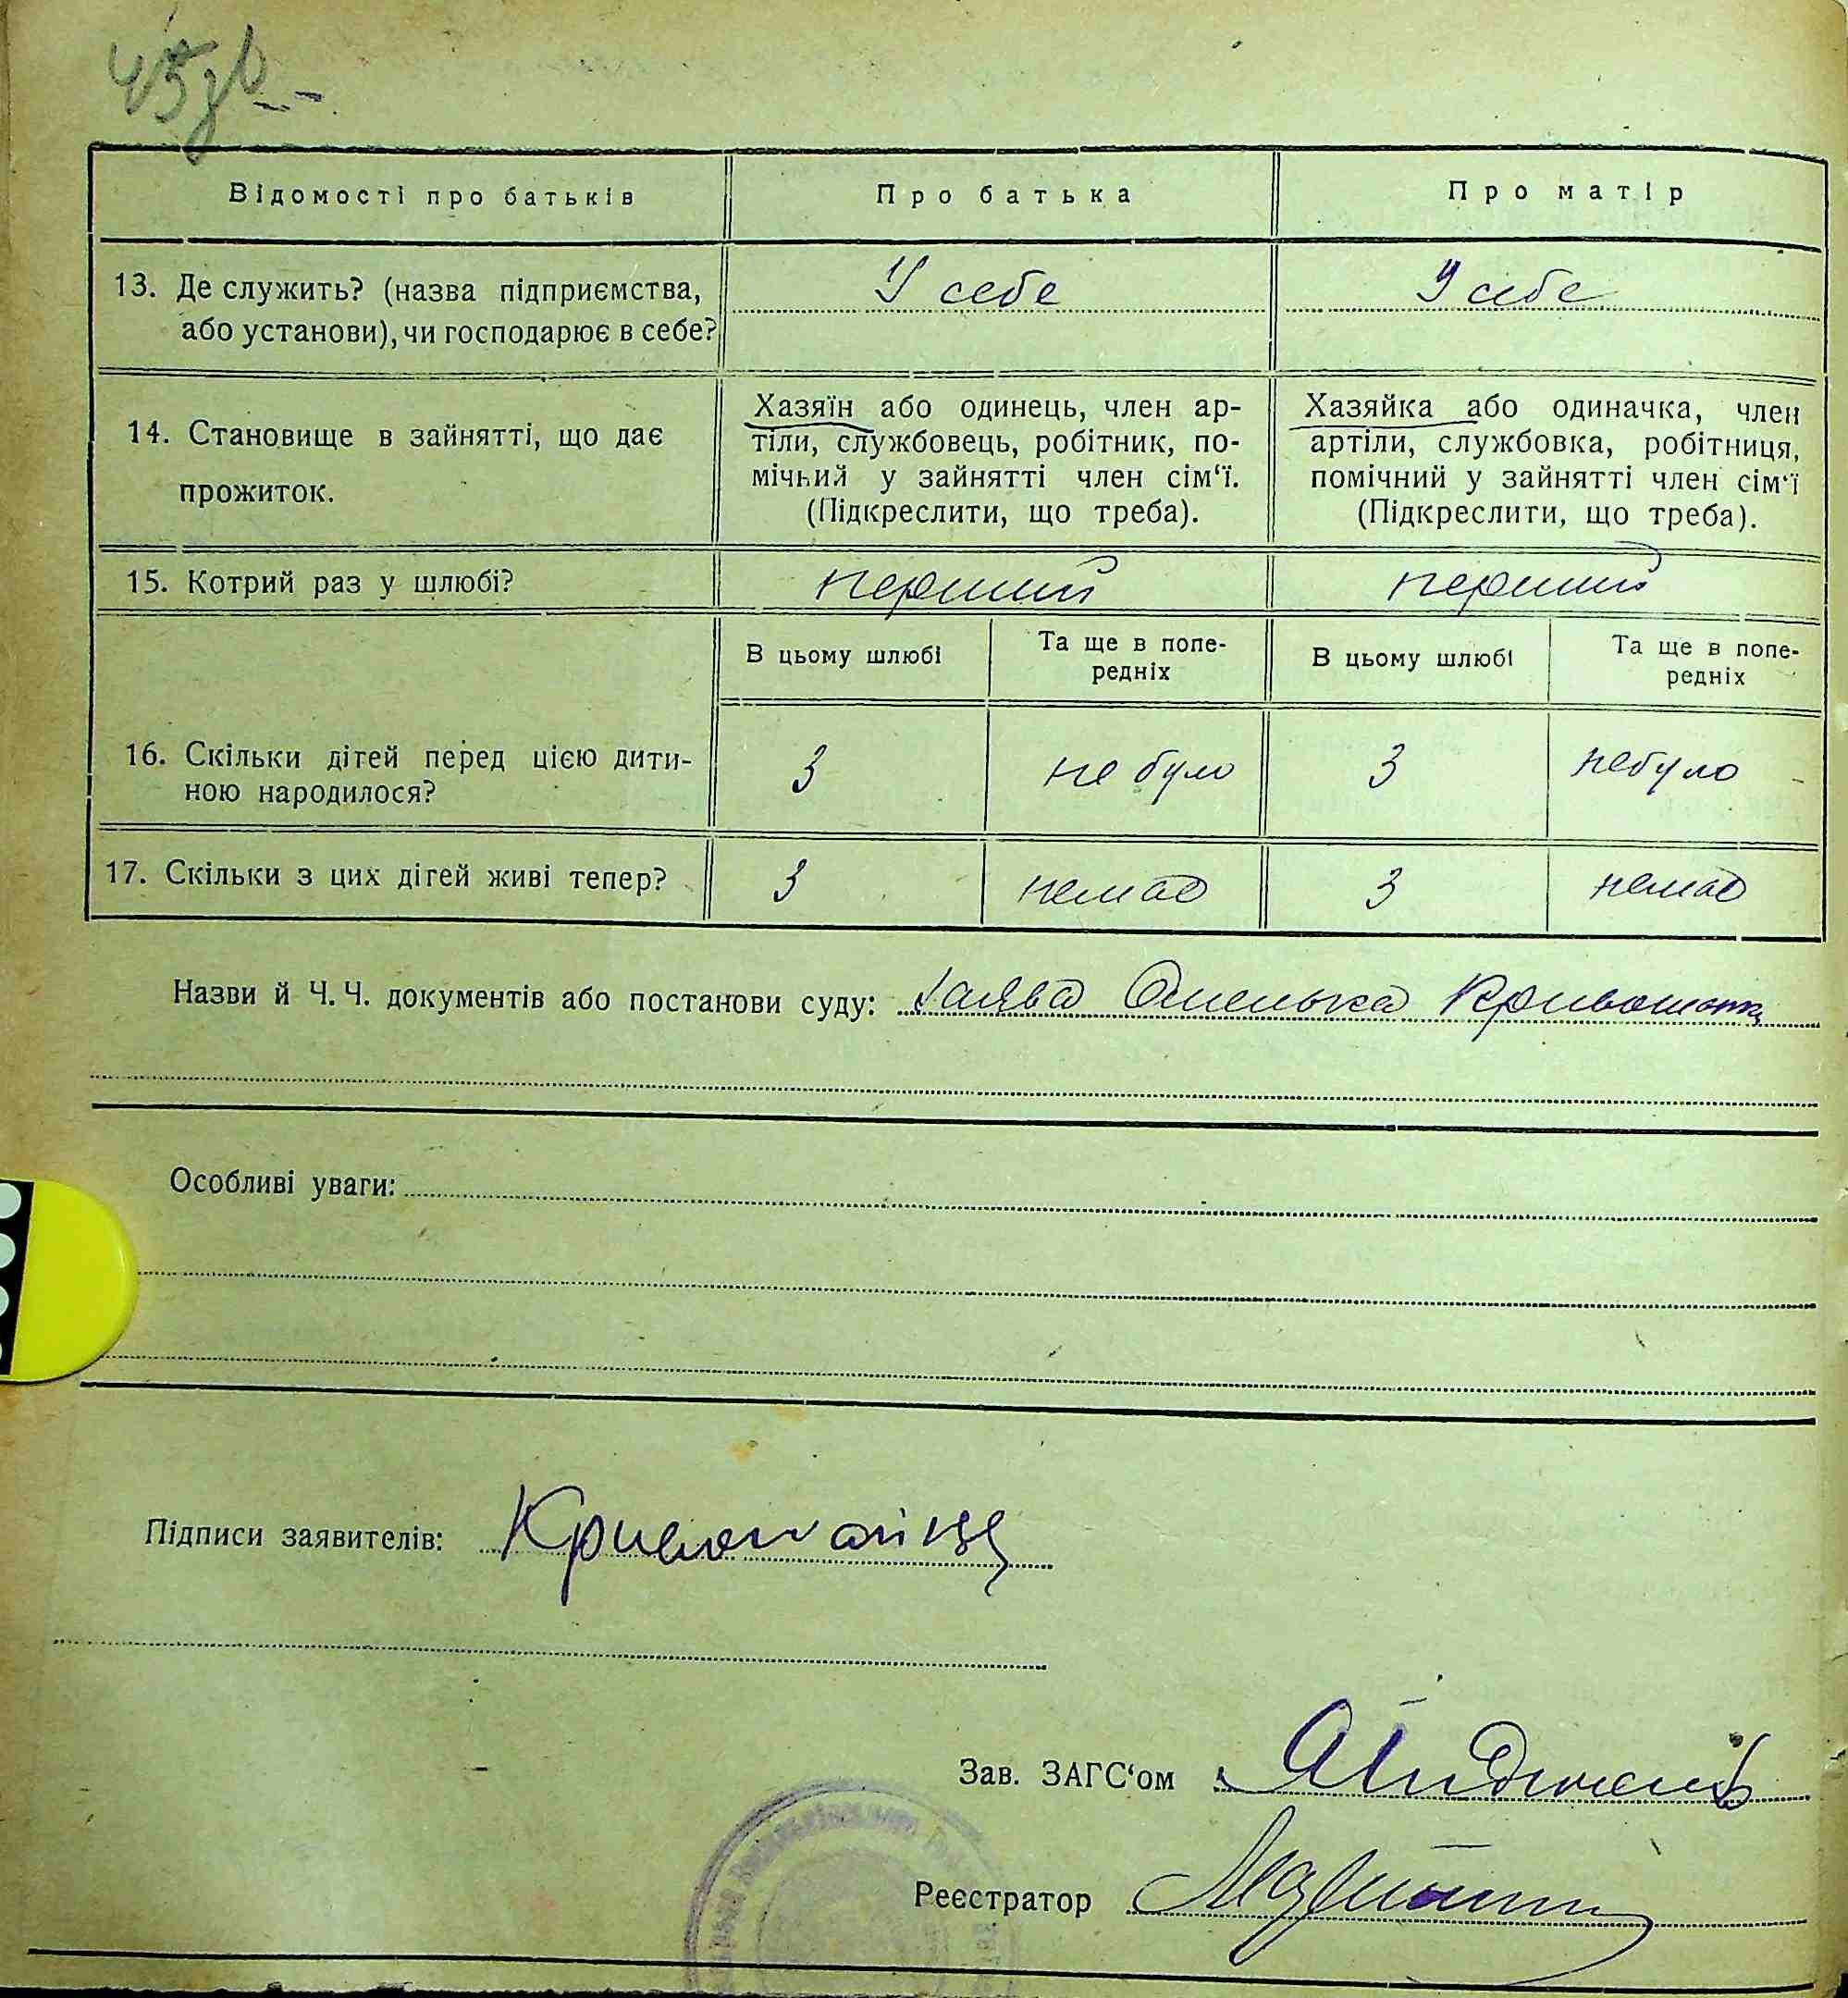 45 зв
Відомості про батьків
Про батька
Про матір
13. Де служить? (назва підприємства,
або установи), чи господарює в себе?
У себе
У себе
14. Становище в зайнятті, що дає
прожиток.
Хазяїн або одинець, член ар-
тіли, службовець, робітник, по-
мічний у зайнятті член сім‘ї.
(Підкреслити, що треба).
Хазяйка або одиначка, член
артіли, службовка, робітниця,
помічний у зайнятті член сім‘ї
(Підкреслити, що треба).
15. Котрий раз у шлюбі?
перший
перший
В цьому шлюбі
Та ще в попе-
редніх
В цьому шлюбі
Та ще в попе-
редніх
16. Скільки дітей перед цією дити-
ною народилося?
3
не було
3
небуло
17. Скільки з цих дітей живі тепер?
3
немає
3
немає
Назви й Ч. Ч. документів або постанови суду: Заява Омелька
Особливі уваги:
Підписи заявителів:
Зав. ЗАГС‘ом
Реєстратор